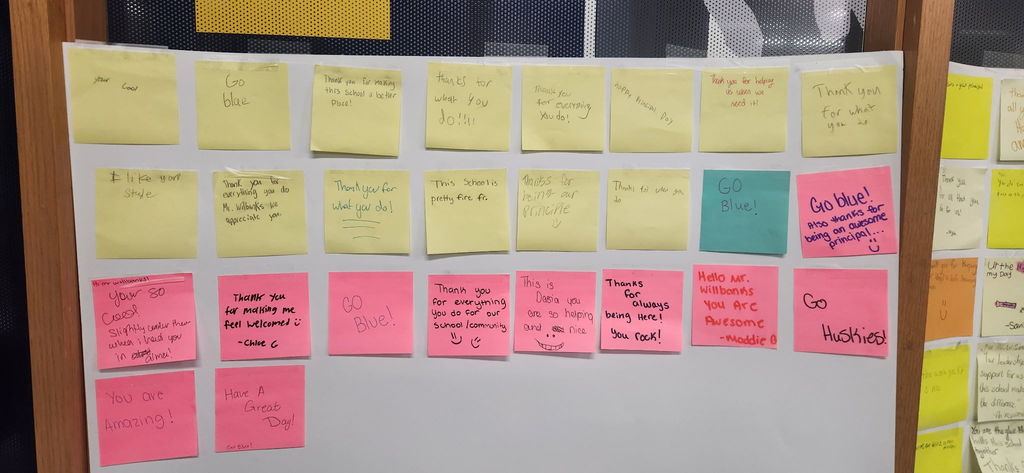 your
Cool
Go
blue
Thank you for making
this School a better
Place!
thanks for
what you
do!!!!
Thank you
for everything
you do!
Happy Princial Day
Thank you for helping
us when we
need it!
Thank you
For what
you do
I like your
Style
Thank you for
everything you do
Mr. Willbanks we
appreciate you.
Thank you for
what you do!
This School is
pretty fire fr.
Thanks for
being our
principle
Thanks for what you
do
GO
Blue!
Go blue!
Also thanks for
being an awesome
principal...
Hi Mr Willbanks!
your so
Cool!
Slightly cooler then
when I had you
in elmen!
Thank you
for making me
feel welcomed
-Chloe C
GO
Blue!
Thank you
for everything
you do for our
School/community
This is
Dasia you
are so helping
and nice
Thanks
for
always
being Here!
you rock!
Hello Mr.
Willbanks
You Are
Awesome
-Maddie B
Go
Huskies!
You are
Amazing!
Have A
Great
Day!
Go Blue!